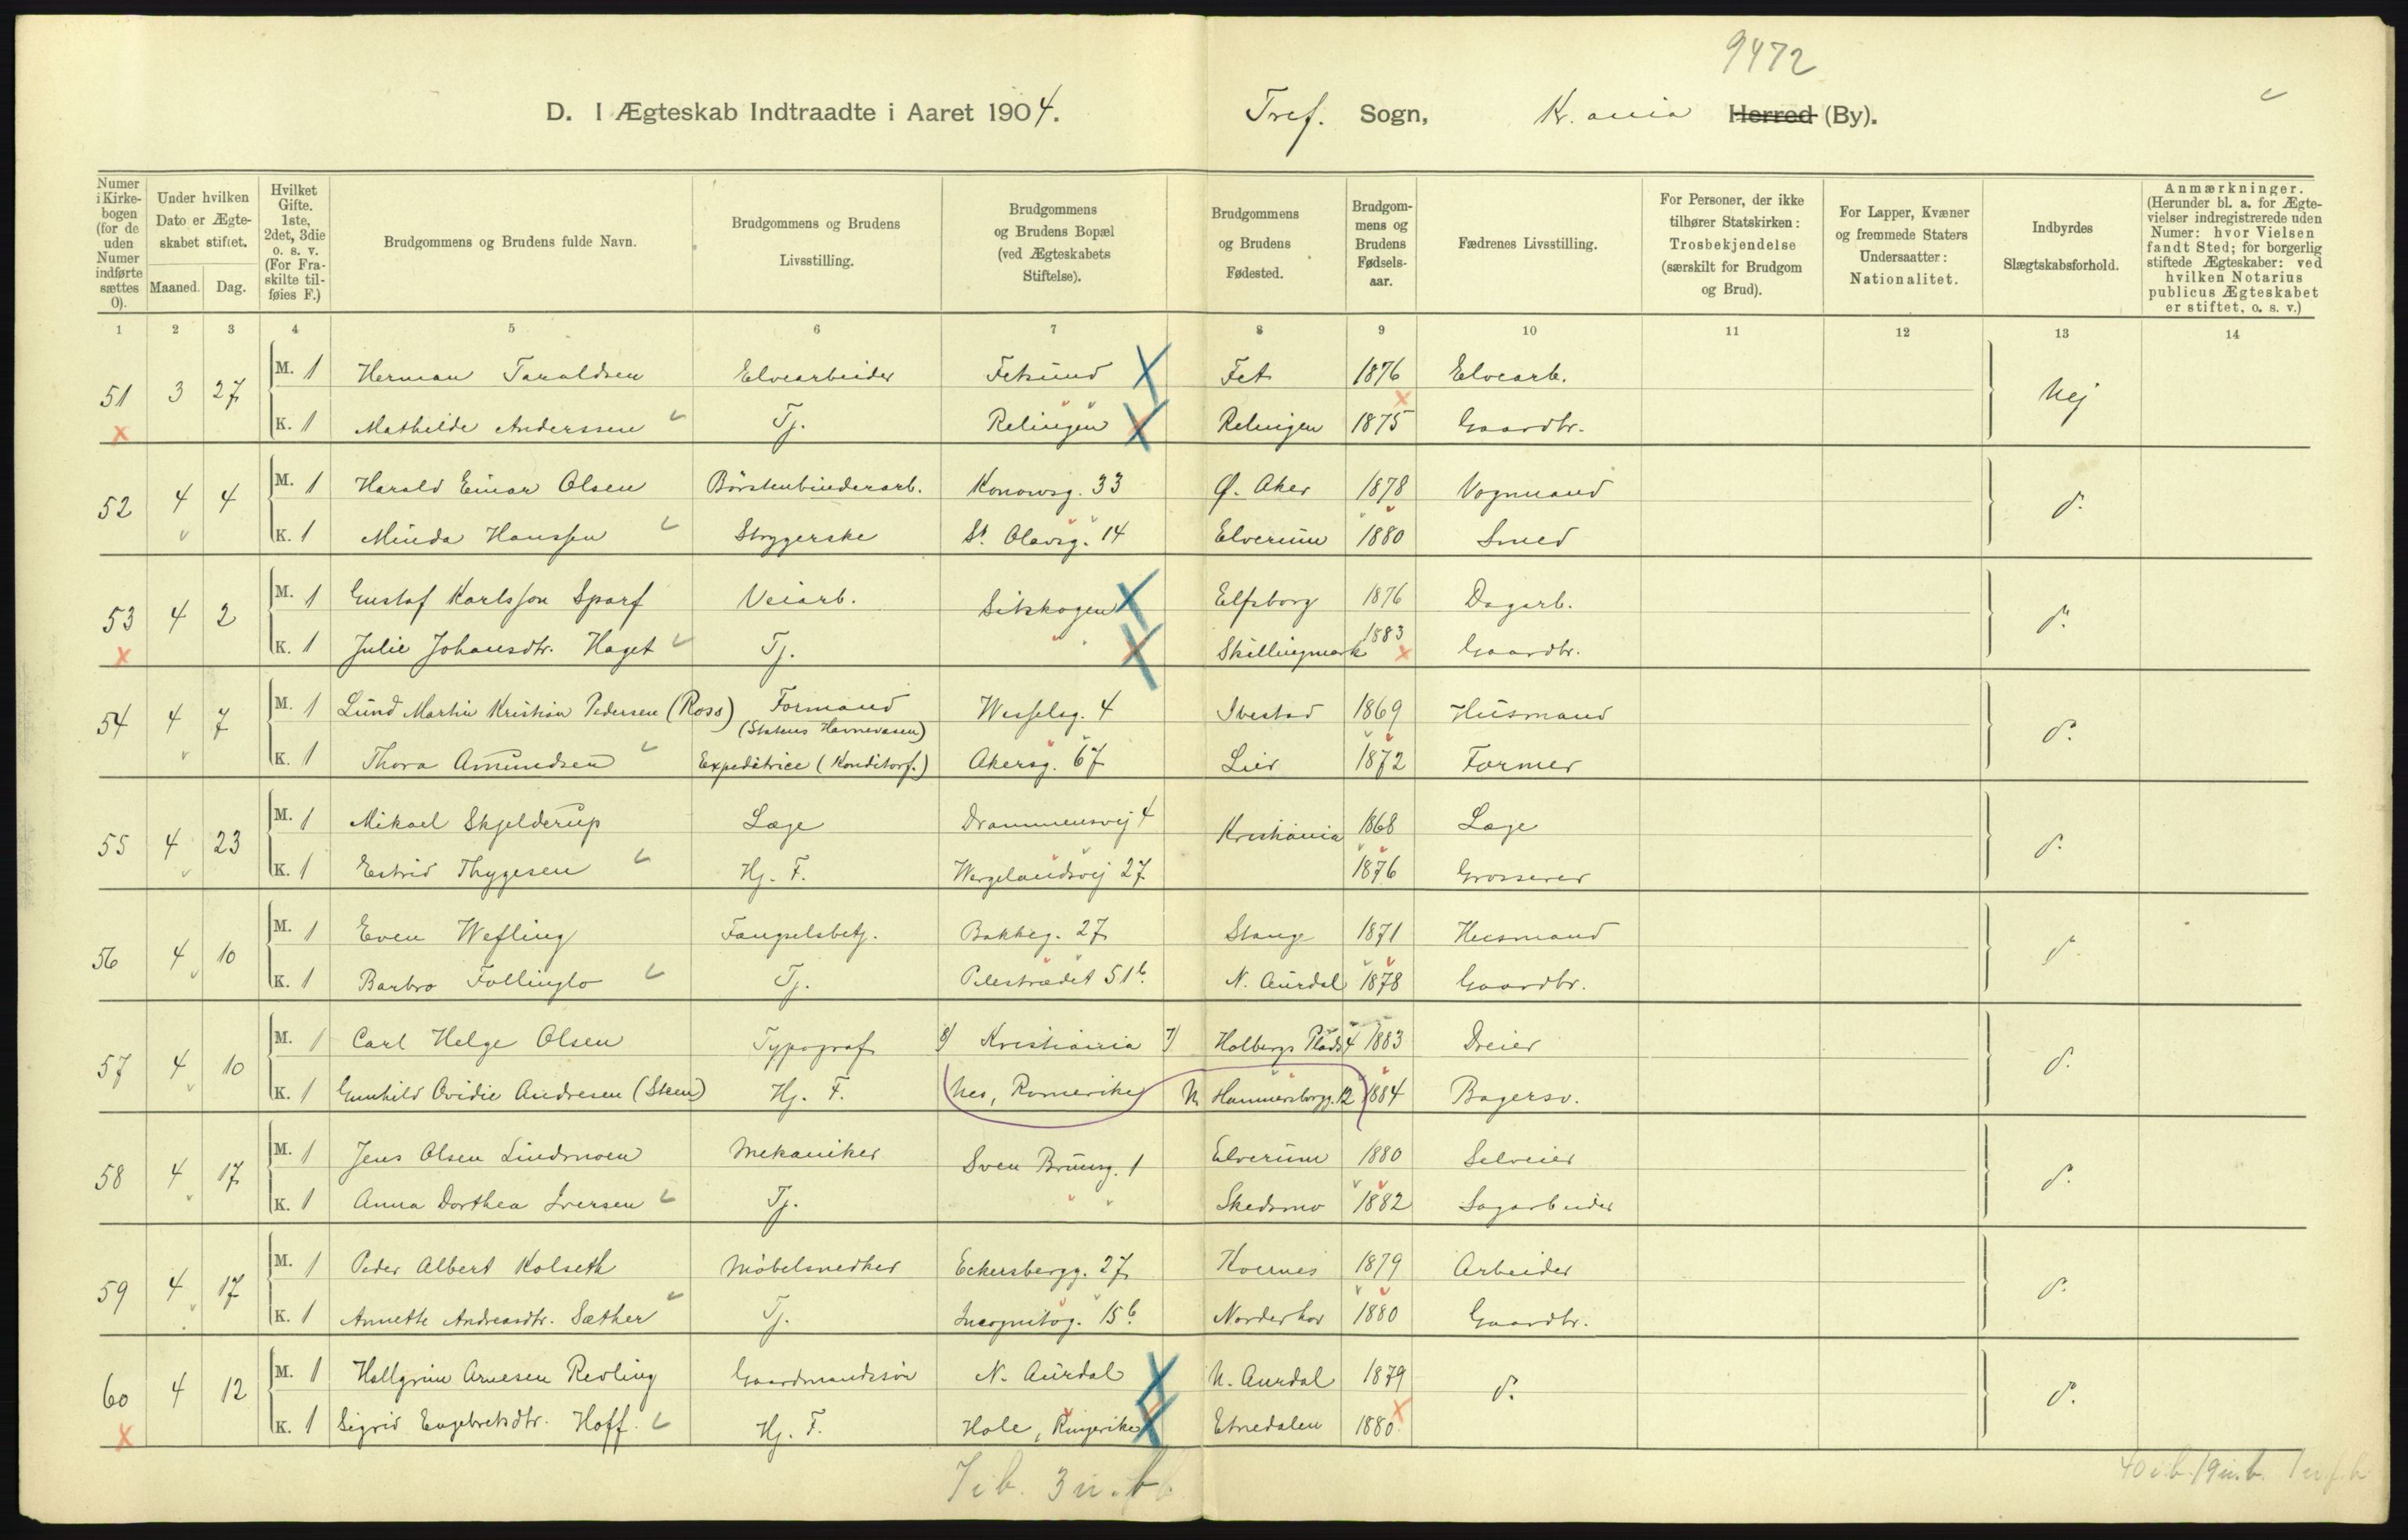 9472
D. I Ægteskab Indtraadte i Aaret 1904. Tref. Sogn, Kr.ania Herred (By).
Numer i Kirkebogen (for de uden Numer indførte sættes 0).
Under hvilken Dato er Ægteskabet stiftet.
Maaned. Dag.
Hvilket Gifte. 1ste, 2det, 3die o. s. v. (For Fraskilte tilføies F.)
Brudgommens og Brudens fulde Navn.
Brudgommens og Brudens Livsstilling.
Brudgommens og Brudens Bopæl (ved Ægteskabets Stiftelse).
Brudgommens og Brudens Fødested.
Brudgommens og Brudens Fødselsaar.
Fædrenes Livsstilling.
For Personer, der ikke tilhører Statskirken: Trosbekjendelse (særskilt for Brudgom og Brud).
For Lapper, Kvæner og fremmede Staters Undersaatter: Nationalitet.
Indbyrdes Slægtskabsforhold.
Anmærkninger. (Herunder bl. a. for Ægtevielser indregistrerede uden Numer: hvor Vielsen fandt Sted; for borgerlig stiftede Ægteskaber: ved hvilken Notarius publicus Ægteskabet er stiftet, o. s. v.)
1 2 3 4 5 6 7 8 9 10 11 12 13 14
51 3 27 M. 1 Herman Taraldsen Elvearbeider Fetsund Fet 1876 Elvearb. Nej
K. 1 Mathilde Anderssen Tj. Relingen Relingen 1875 Gaardbr.
52 4 4 M. 1 Harald Einar Olsen Börstenbinderarb. Konowsg. 33 Ø. Aker 1878 Vognmand d.
K. 1 Minda Hanssen Strygerske St. Olavsg. 14 Elverum 1880 Smed
53 4 2 M. 1 Gustaf Karlsson Sparf Veiarb. Sitskogen Elfsborg 1876 Dagarb. d.
K. 1 Julie Johansdtr. Haget Tj. " Skillingmark 1883 Gaardbr.
54 4 7 M. 1 Lund Martin Kristian Pedersen (Ross) Formand (Statens Havnevæsen) Wesselsg. 4 Ibestad 1869 Husmand d.
K. 1 Thora Amundsen Expeditrice (Konditorf.) Akersg. 67 Lier 1872 Former
55 4 23 M. 1 Mikael Skjelderup Læge Drammensvej 4 Kristiania 1868 Læge d.
K. 1 Estrid Thygesen Hj. F. Wergelandsvej 27 1876 Grosserer
56 4 10 M. 1 Even Wefling Fængselsbetj. Bakkeg. 27 Stange 1871 Husmand d.
K. 1 Barbro Follinglo Tj. Pilestrædet 51b. N. Aurdal 1878 Gaardbr.
57 4 10 M. 1 Carl Helge Olsen Typograf 8) Kristiania 7) Holbergs Plads 4 1883 Dreier d.
K. 1 Gunhild Ovidie Andresen (Steen) Hj. F. Nes, Romerike N. Hammersborgg. 12 1884 Bagersv.
58 4 17 M. 1 Jens Olsen Lindmoen Mekaniker Sven Brunsg. 1 Elverum 1880 Selveier d.
K. 1 Anna Dorthea Iversen Tj. " " Skedsmo 1882 Sagarbeider
59 4 17 M. 1 Peder Albert Kolseth Møbelsnedker Eckersbergg. 27 Kvernes 1879 Arbeider d.
K. 1 Annette Andreasdtr. Sæther Tj. Incognitog. 15b. Norderhov 1880 Gaardbr.
60 4 12 M. 1 Hallgrim Arnesen Revling Gaardmandssøn N. Aurdal N. Aurdal 1879 d. d.
K. 1 Sigrid Engebretsdtr. Hoff. Hj. F. Hole, Ringerike Etnedalen 1880
7 i b. 3 u. b.